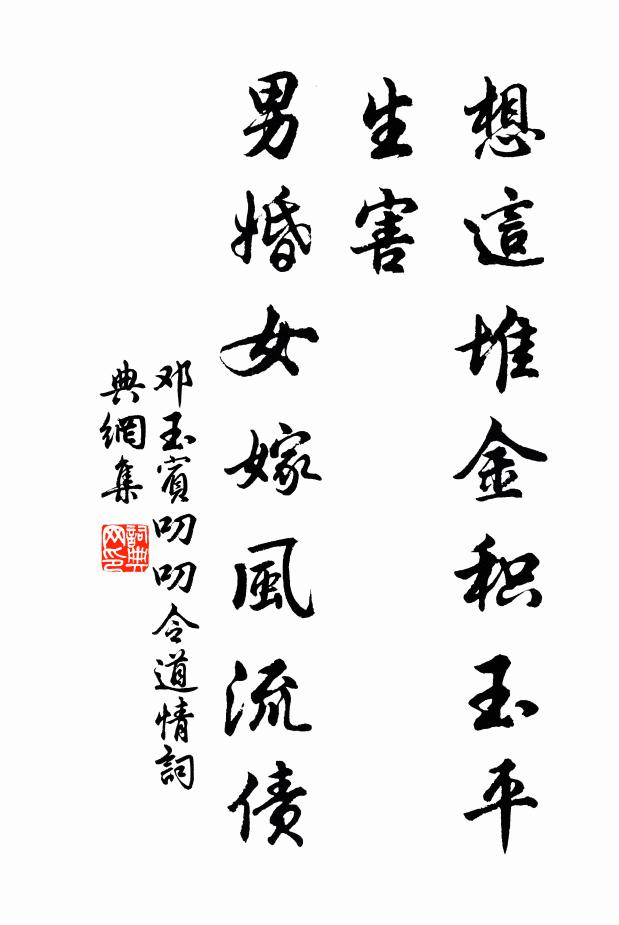 想這堆金积玉平
生害
男婚女嫁風流债
邓玉賓叨叨令道情詞
典網集
詞典
网印